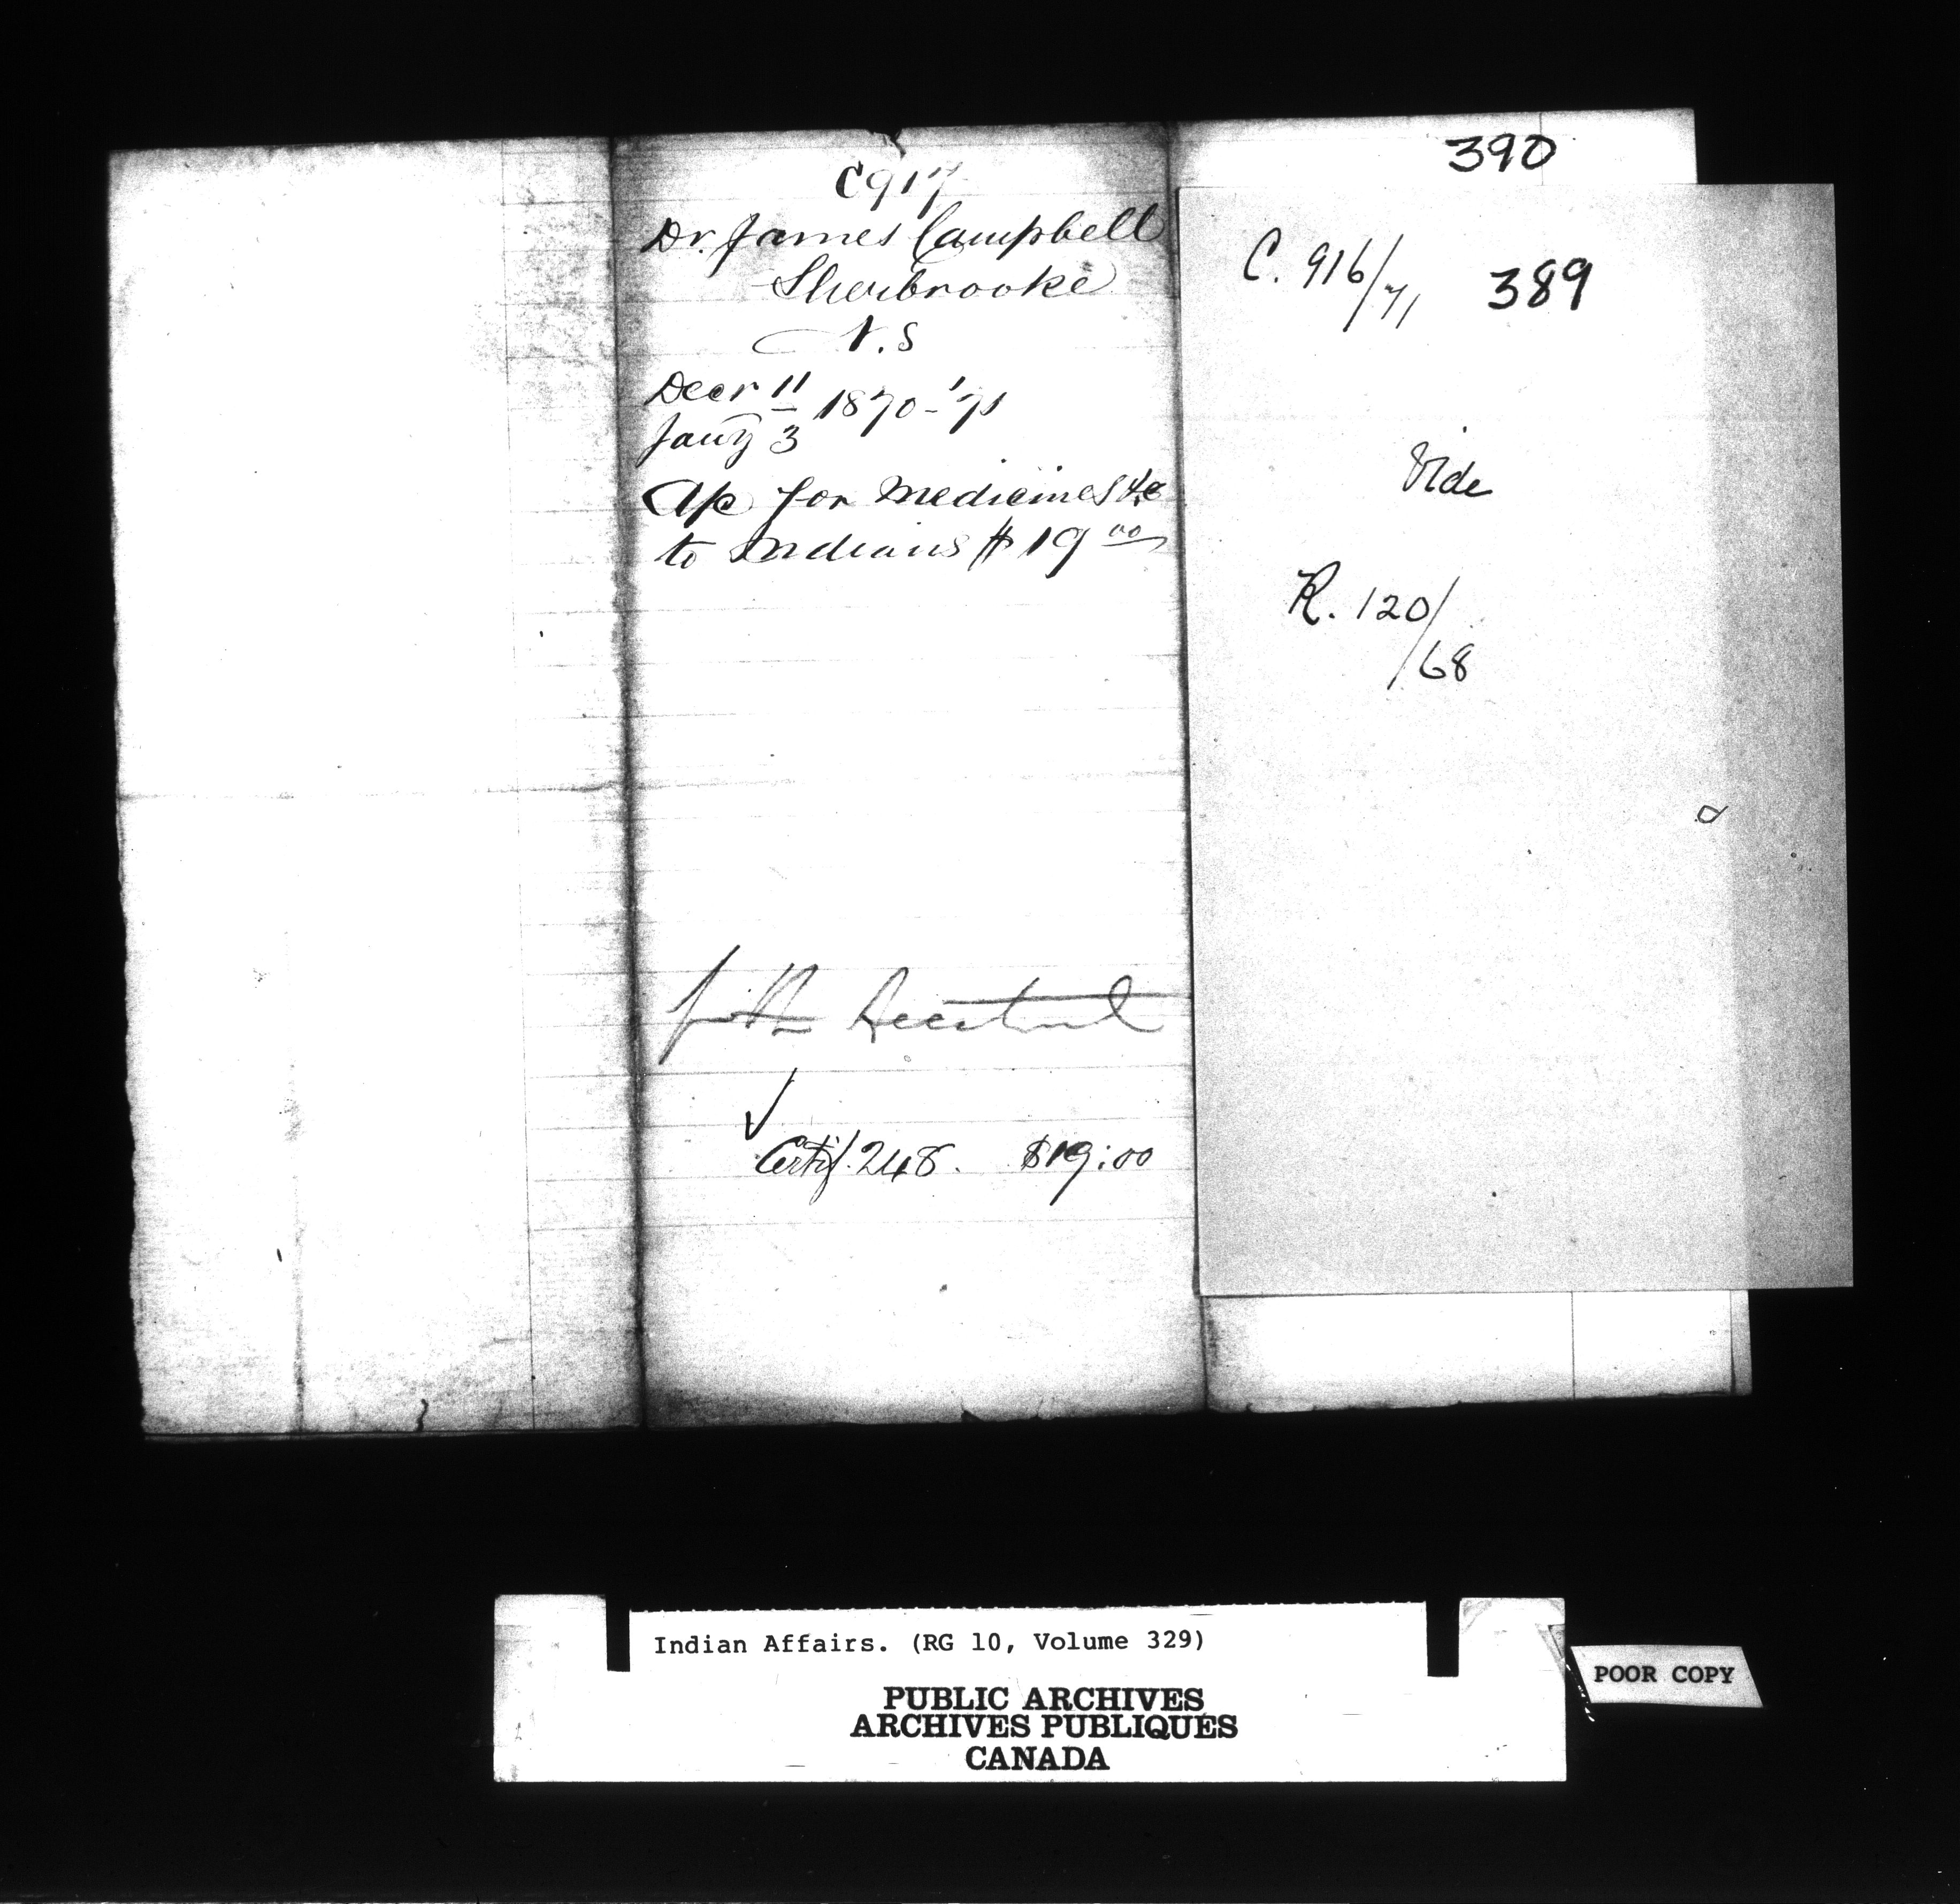 C917
Dr. James Campbell
Sherbrooke
N.S
Decr 11
Jany 3 1870-'71
A/c for medicines &c
to Indians $19 00
✓
Certif. 248. $19:00
390
C. 916/71 389
Vide
R. 120/68
Indian Affairs. (RG 10, Volume 329)
PUBLIC ARCHIVES
ARCHIVES PUBLIQUES
CANADA
POOR COPY